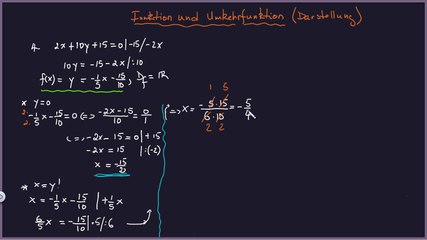 Funktion und Umkehrfunktion (Darstellung)
4. 2x+10y+15=0|-15/-2x
10y = -15-2x|:10
f(x) = y = -1/5 x - 15/10, D_f = ℝ
* y=0
2. -1/5 x - 15/10 = 0 (=> (-2x-15)/10 = 0/1
2.
(=, -2x-15=0|+15
-2x = 15 |:(-2)
x = -15/2
* x=y!
x = -1/5 x - 15/10 |+1/5 x
6/5 x = -15/10 |·5/:6
=> x = -(5·15)/(6·10) = -5/4
1 5
2 2